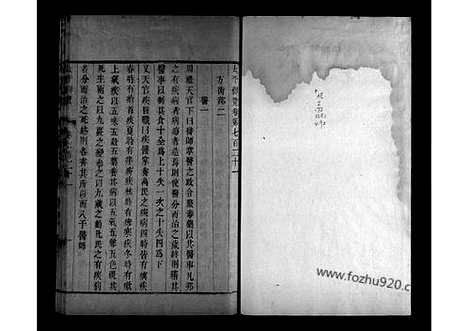 太平御覽卷第七百二十一
方術部二
醫一
周禮天官下曰醫師掌醫之政令聚毒藥以共醫事凡邦
之有疾病者疕瘍者造焉則使醫分而治之歲終則稽其
醫事以制其食十全為上十失一次之十失四為下
又天官疾醫曰疾醫掌養萬民之疾病四時皆有癘疾
春時有痟首疾夏時有痒疥疾秋時有瘧寒疾冬時有嗽
上氣疾以五味五穀五藥養其病以五氣五聲五色視其
死生兩之以九竅之變參之以九藏之動凡民之有疾病
者分而治之死終則各書其所以而入于醫師
www.fozhu920.com